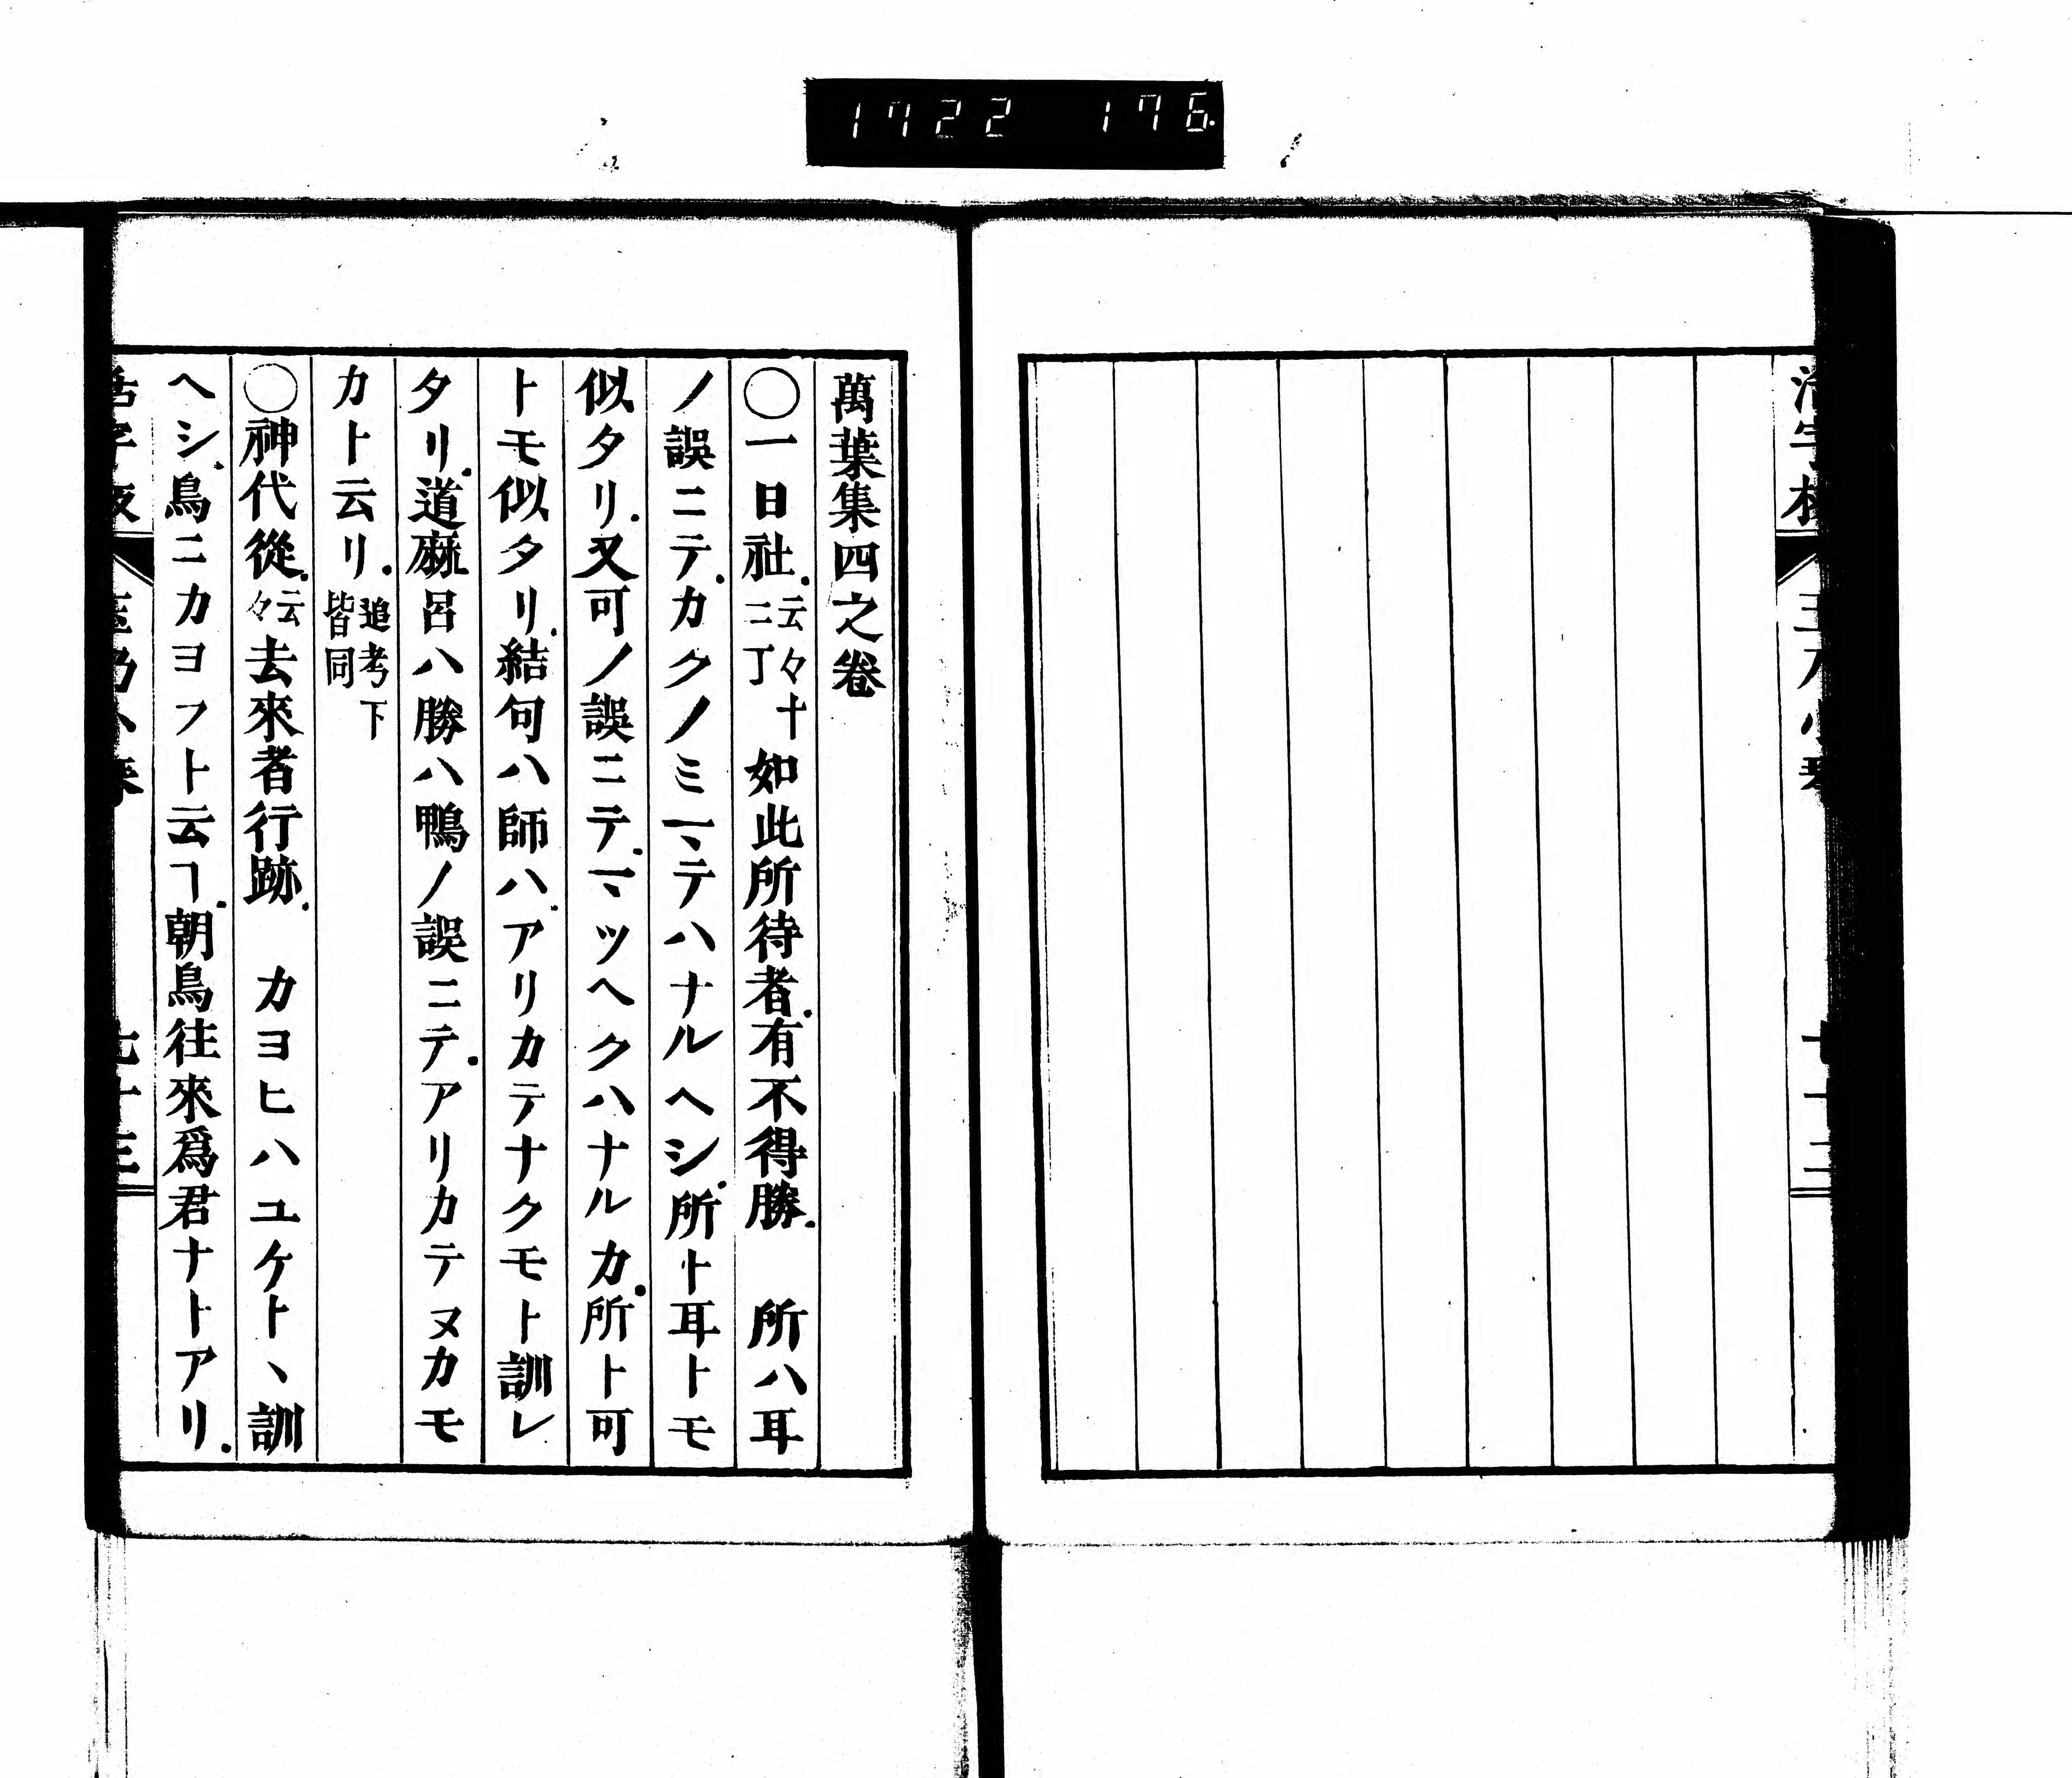 1722 176
活字板
萬葉集四之卷
○一日社云々十二丁如此所待者有不得勝　所ハ耳
ノ誤ニテカクノミ一ヽテハナルヘシ所ト耳トモ
似タリ又可ノ誤ニテ一マツヘクハナルカ所ト可
トモ似タリ結句ハ師ハアリカテナクモト訓レ
タリ道麻呂ハ勝ハ鴨ノ誤ニテアリカテヌカモ
カト云リ追考下皆同
○神代從云々去來者行跡　カヨヒハユケトヽ訓
ヘシ鳥ニカヨフト云ヿ朝鳥往來爲君ナトアリ